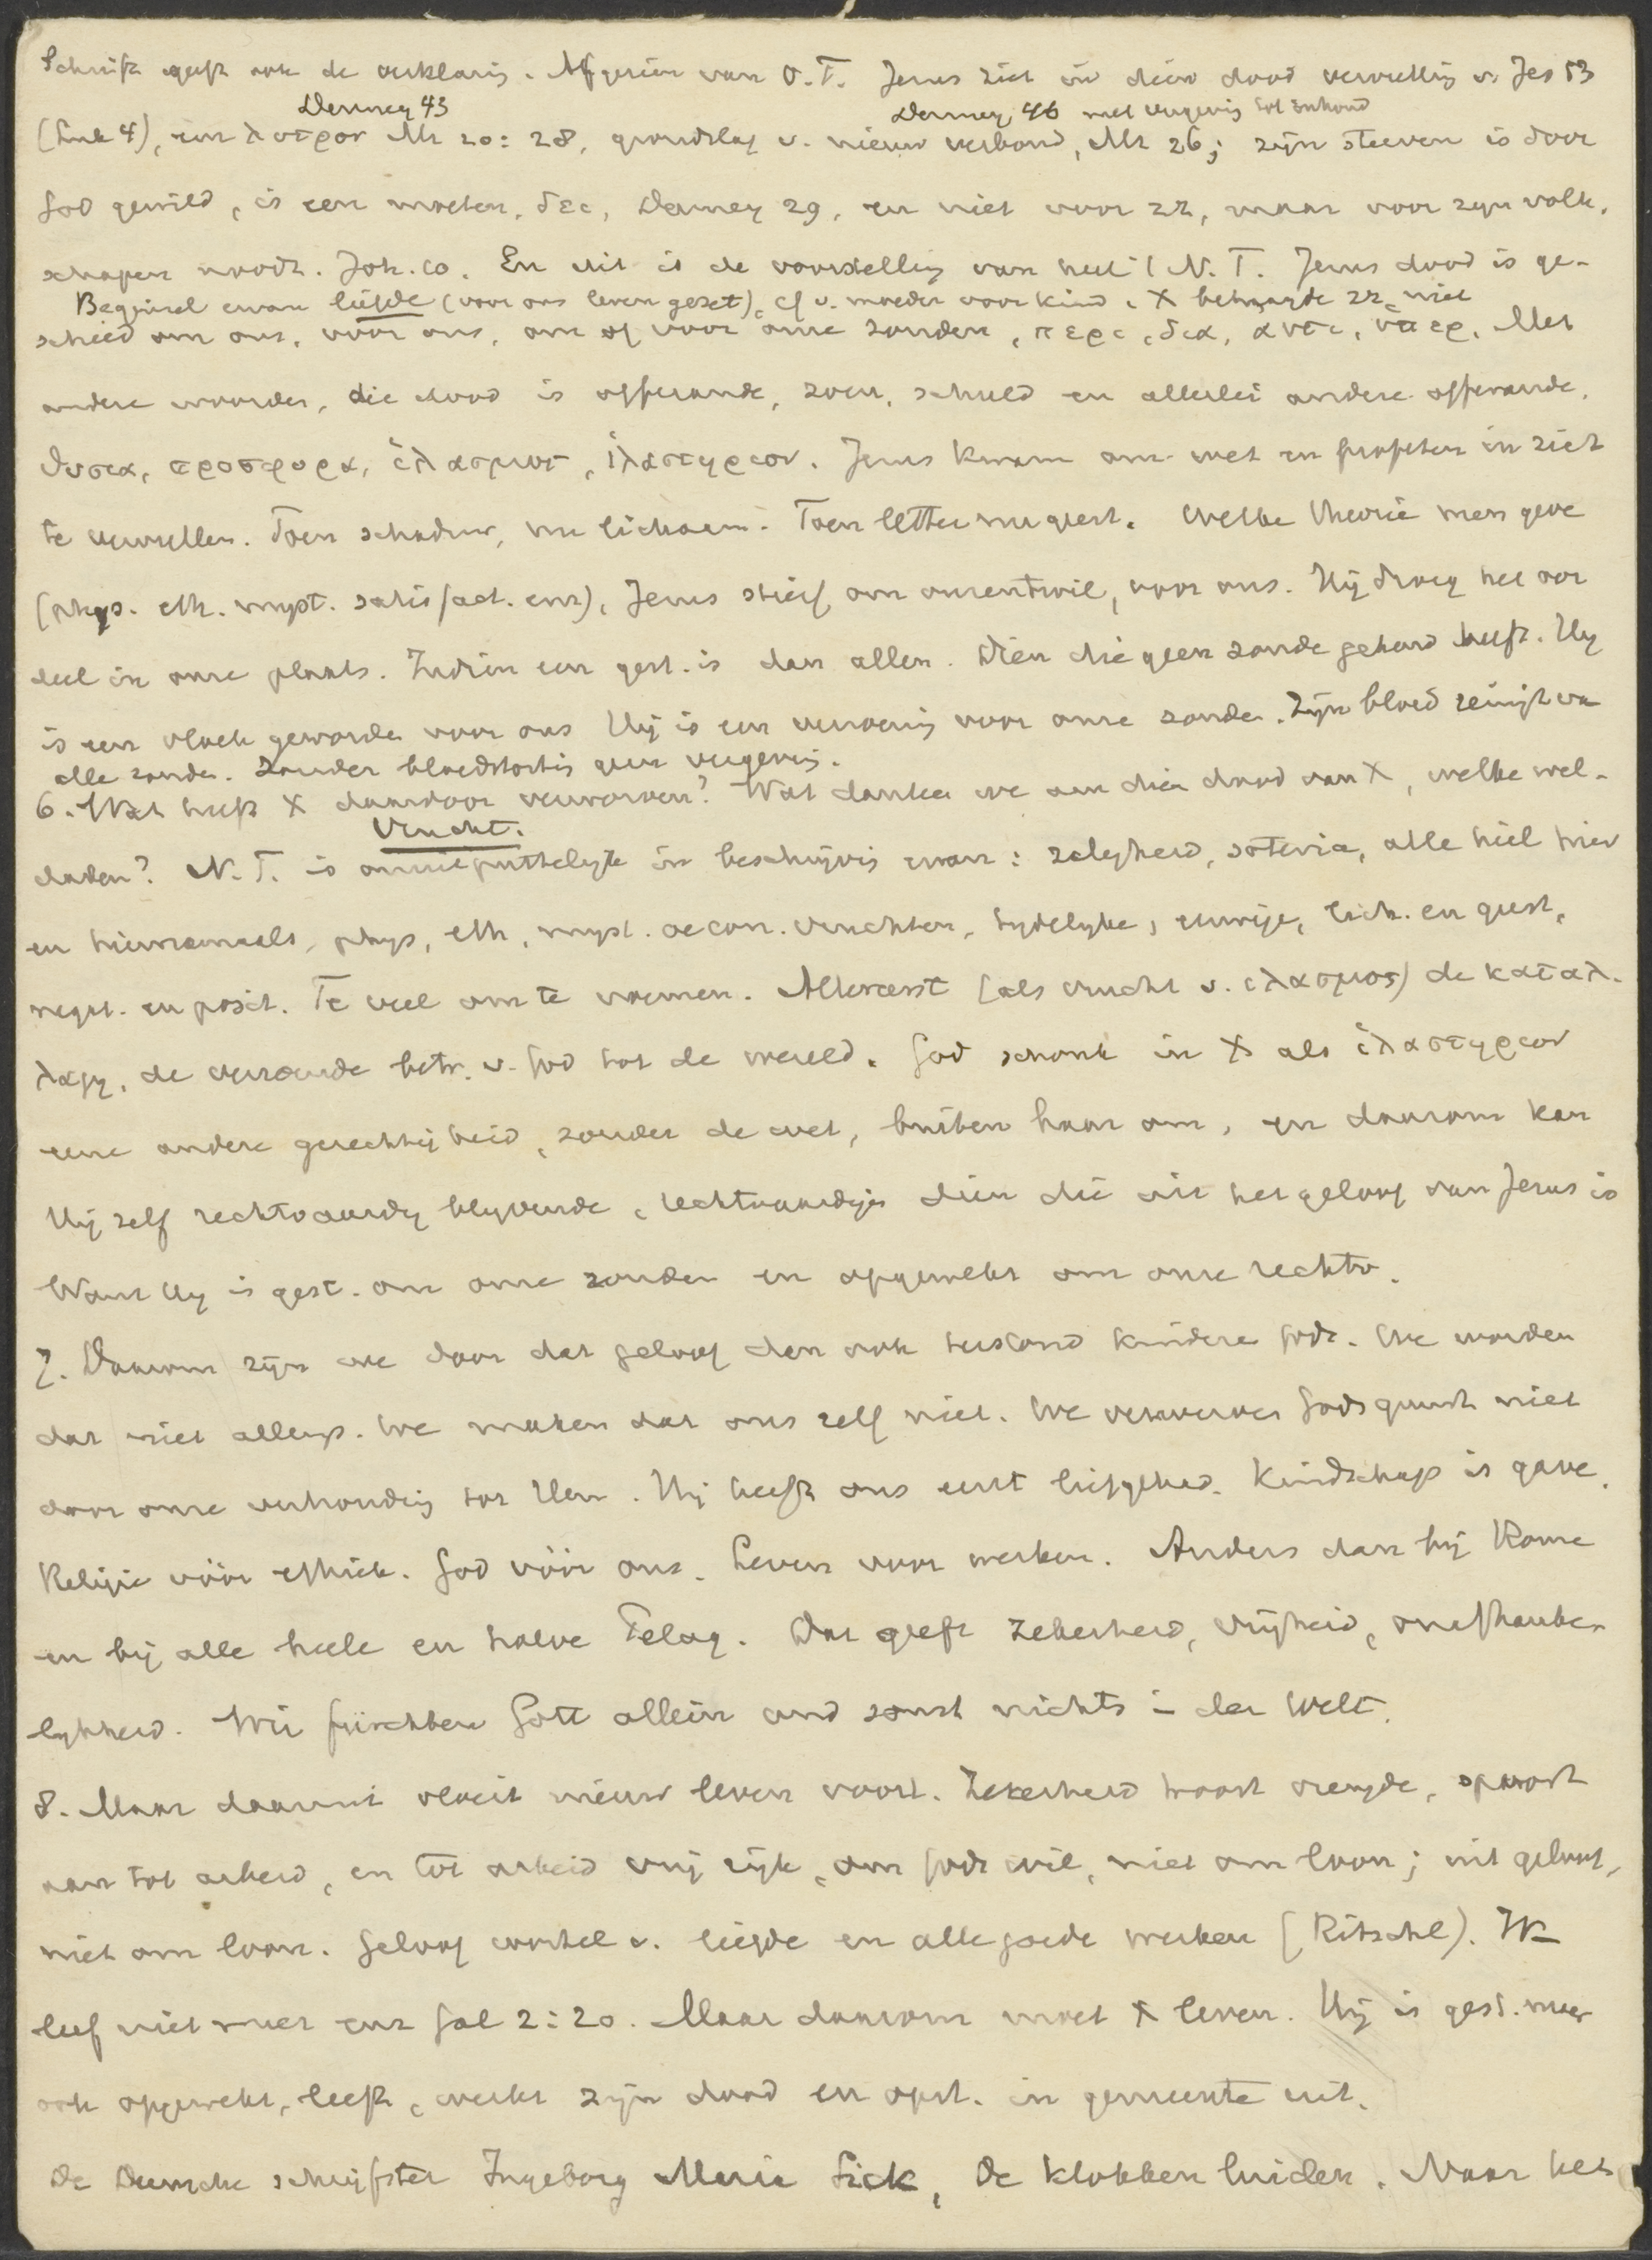 Schrift geeft ook de verklaring. Afgezien van O.T. Jezus ziet in dien dood vervulling v. Jes 53
Denney 43
Denney 46 met vergeving tot inhoud
(Luk 4), een λυτρον Mt 20:28, grondslag v. nieuw verbond, Mt 26; zijn sterven is door
God gewild, is een moeten, δει, Denney 29, en niet voor zz, maar voor zyn volk,
schapen noodz. Joh. 10. En dit is de voorstelling van heel 't N.T. Jezus dood is ge-
Beginsel ervan liefde (voor ons leven gezet), cf v. moeder voor kind. X behaagde zz niet
schied om ons, voor ons, om of voor onze zonden, περι, δια, αντι, ὑπερ. Met
andere woorden, die dood is offerande, zoen, schuld en allerlei andere offerande,
θυσια, προσφορα, ἱλασμος, ἱλαστηριον. Jezus kwam om wet en profeten in zich
te vervullen. Toen schaduw, nu lichaam. Toen letter nu geest. Welke theorie men geve
(phys. eth. myst. satisfact. enz), Jezus stierf om onzentwil, voor ons. Hij droeg het oor
deel in onze plaats. Indien een gest. is dan allen. Dien die geen zonde gekend heeft. Hy
is een vloek geworden voor ons Hij is een verzoening voor onze zonden. Zijn bloed reinigt van
alle zonden. Zonder bloedstorting geen vergeving.
6. Wat heeft X daardoor verworven? Wat danken we aan dien dood van X, welke wel-
Vrucht.
daden? N.T. is onuitputtelijk in beschrijving ervan: zaligheid, soteria, alle heil hier
en hiernamaals, phys, eth, myst. oecon. vruchten, tydelyke, eeuwige, lich. en geest,
negat. en posit. Te veel om te noemen. Allereerst (als vrucht v. ιλασμος) de καταλ-
λαγη, de verzoende betr. v. God tot de wereld. God schonk in X als ἱλαστηριον
eene andere gerechtigheid, zonder de wet, buiten haar om, en daarom kan
Hij zelf rechtvaardig blijvende, rechtvaardigen dien die uit het geloof van Jezus is
Want Hy is gest. om onze zonden en opgewekt om onze rechtv.
7. Daarom zijn we door dat geloof dan ook terstond kinderen Gods. We worden
dat niet allengs. We maken dat ons zelf niet. We verwerven Gods gunst niet
door onze verhouding tot Hem. Hij heeft ons eerst liefgehad. Kindschap is gave.
Religie vóór ethiek. God vóór ons. Leven voor werken. Anders dan bij Rome
en bij alle heele en halve Pelag. Dat geeft zekerheid, vrijheid, onafhanke-
lykheid. Wir fürchten Gott allein und sonst nichts in der Welt.
8. Maar daaruit vloeit nieuw leven voort. Zekerheid baart vreugde, spoort
aan tot arbeid, en tot arbeid vrij rijk, om Gods wil, niet om loon; uit geloof,
niet om loon. Geloof wortel v. liefde en alle goede werken (Ritschl). Ik
leef niet meer enz Gal 2:20. Maar daarom moet X leven. Hij is gest. meer
ook opgewekt, leeft, werkt zijn dood en opst. in gemeente uit.
De Deensche schrijfster Ingeborg Maria Sick, De klokken luiden. Naar het